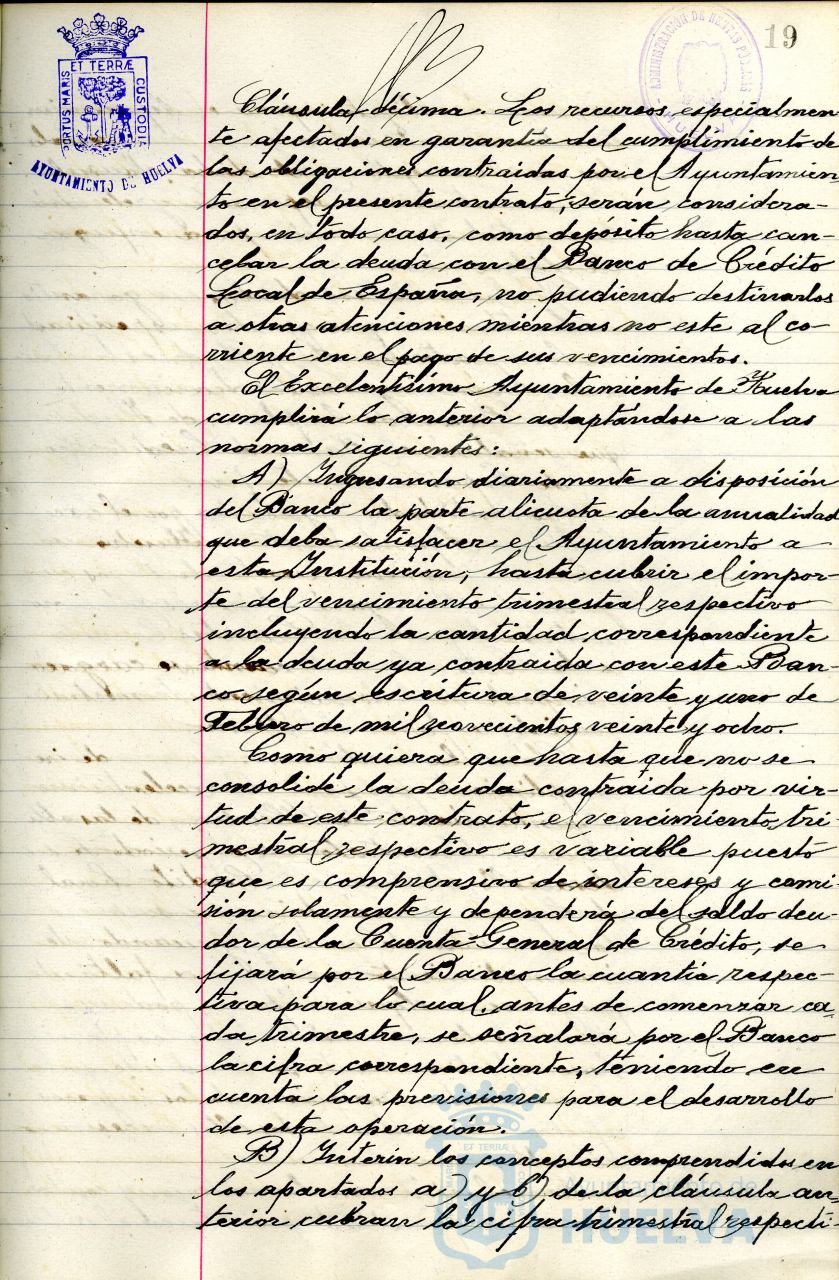 19
ET TERRÆ
PORTUS MARIS
CUSTODIA
AYUNTAMIENTO DE HUELVA
ADMINISTRACIÓN DE RENTAS PÚBLICAS
Cláusula décima. Los recursos especialmen
te afectados en garantía del cumplimiento de
las obligaciones contraidas por el Ayuntamien
to en el presente contrato, serán considera-
dos, en todo caso, como depósito hasta can-
celar la deuda con el Banco de Crédito
Local de España, no pudiendo destinarlos
a otras atenciones mientras no este al co-
rriente en el pago de sus vencimientos.
El Excelentísimo Ayuntamiento de Huelva
cumplirá lo anterior adaptándose a las
normas siguientes:
A) Ingresando diariamente a disposición
del Banco la parte alicuota de la anualidad
que deba satisfacer el Ayuntamiento a
esta Institución, hasta cubrir el impor-
te del vencimiento trimestral respectivo
incluyendo la cantidad correspondiente
a la deuda ya contraida con este Ban-
co según escritura de veinte y uno de
Febrero de mil novecientos veinte y ocho.
Como quiera que hasta que no se
consolide la deuda contraida por vir-
tud de este contrato, el vencimiento tri-
mestral respectivo es variable puesto
que es comprensivo de intereses y comi
sión solamente y dependerá del saldo deu-
dor de la Cuenta General de Crédito, se
fijará por el Banco la cuantía respec-
tiva para lo cual, antes de comenzar ca-
da trimestre, se señalará por el Banco
la cifra correspondiente, teniendo en
cuenta las previsiones para el desarrollo
de esta operación.
B) Interin los conceptos comprendidos en
los apartados a) y b) de la clausula an-
terior cubran la cifra trimestral respecti-
ET TERRÆ
Ayuntamiento de
HUELVA